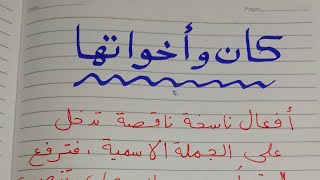 كان وأخواتها
أفعال ناسخة ناقصة تدخل
على الجملة الاسمية ، فترفع